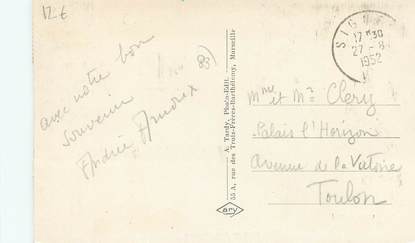 12.€
83)
avec notre bon
souvenir
Andrée Arnoux
A. Tardy, Photo-Edit.
55 A, rue des Trois-Frères-Barthélemy, Marseille
ary
SIGN
17 H 30
27 - 8
1952
Mme et Mr Clery
Palais l'Horizon
Avenue de la Victoire
Toulon